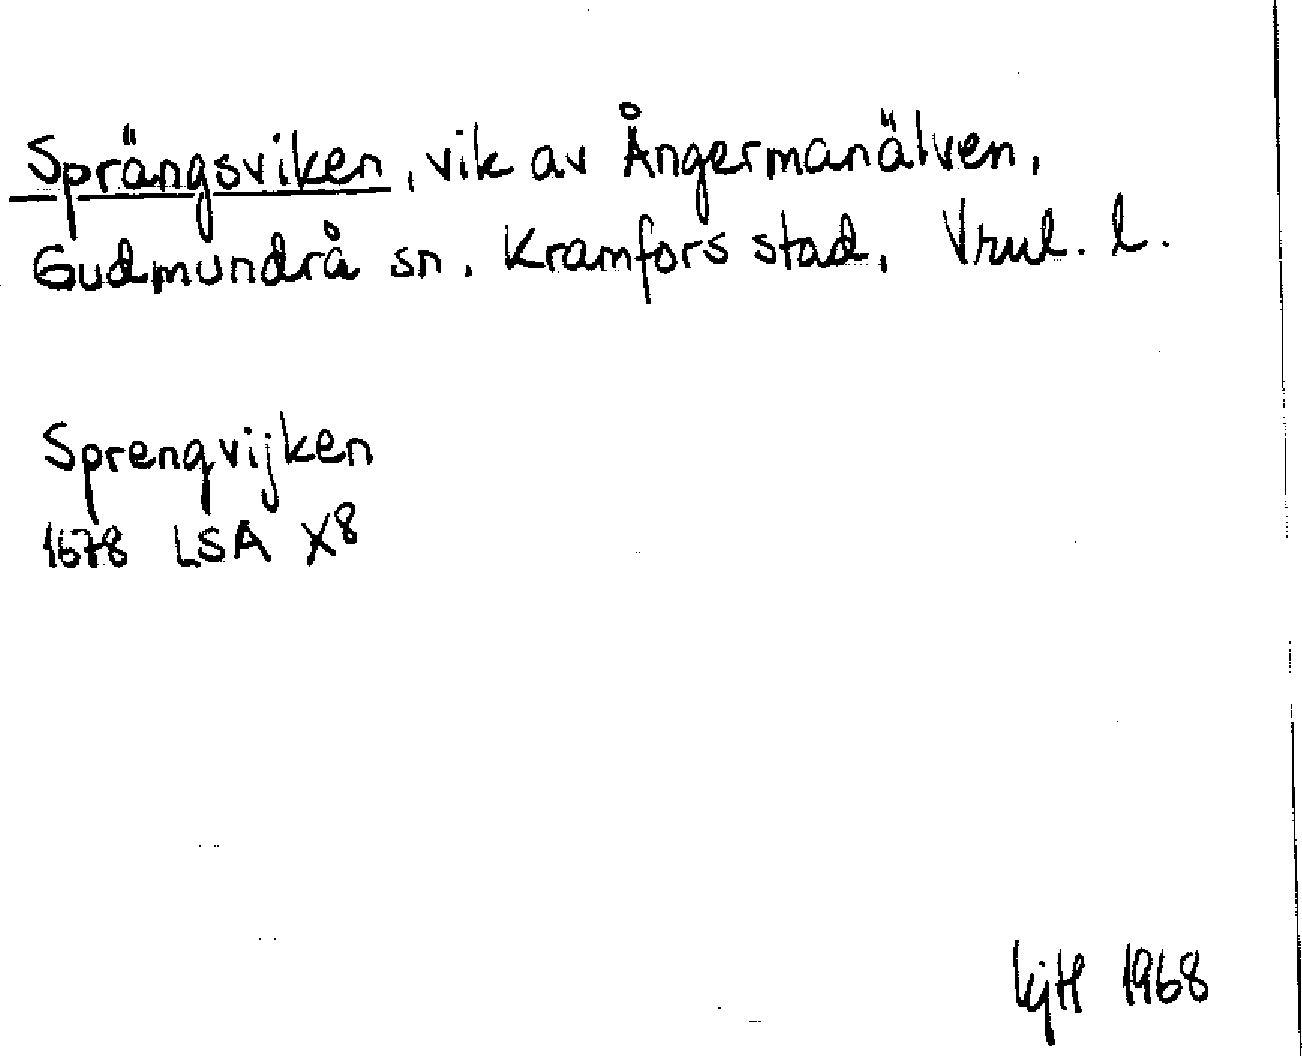 Sprängsviken, vik av Ångermanälven,
Gudmundrå sn, Kramfors stad, Vrnl. l.
Sprengvijken
1678 LSA X8
KjH 1968